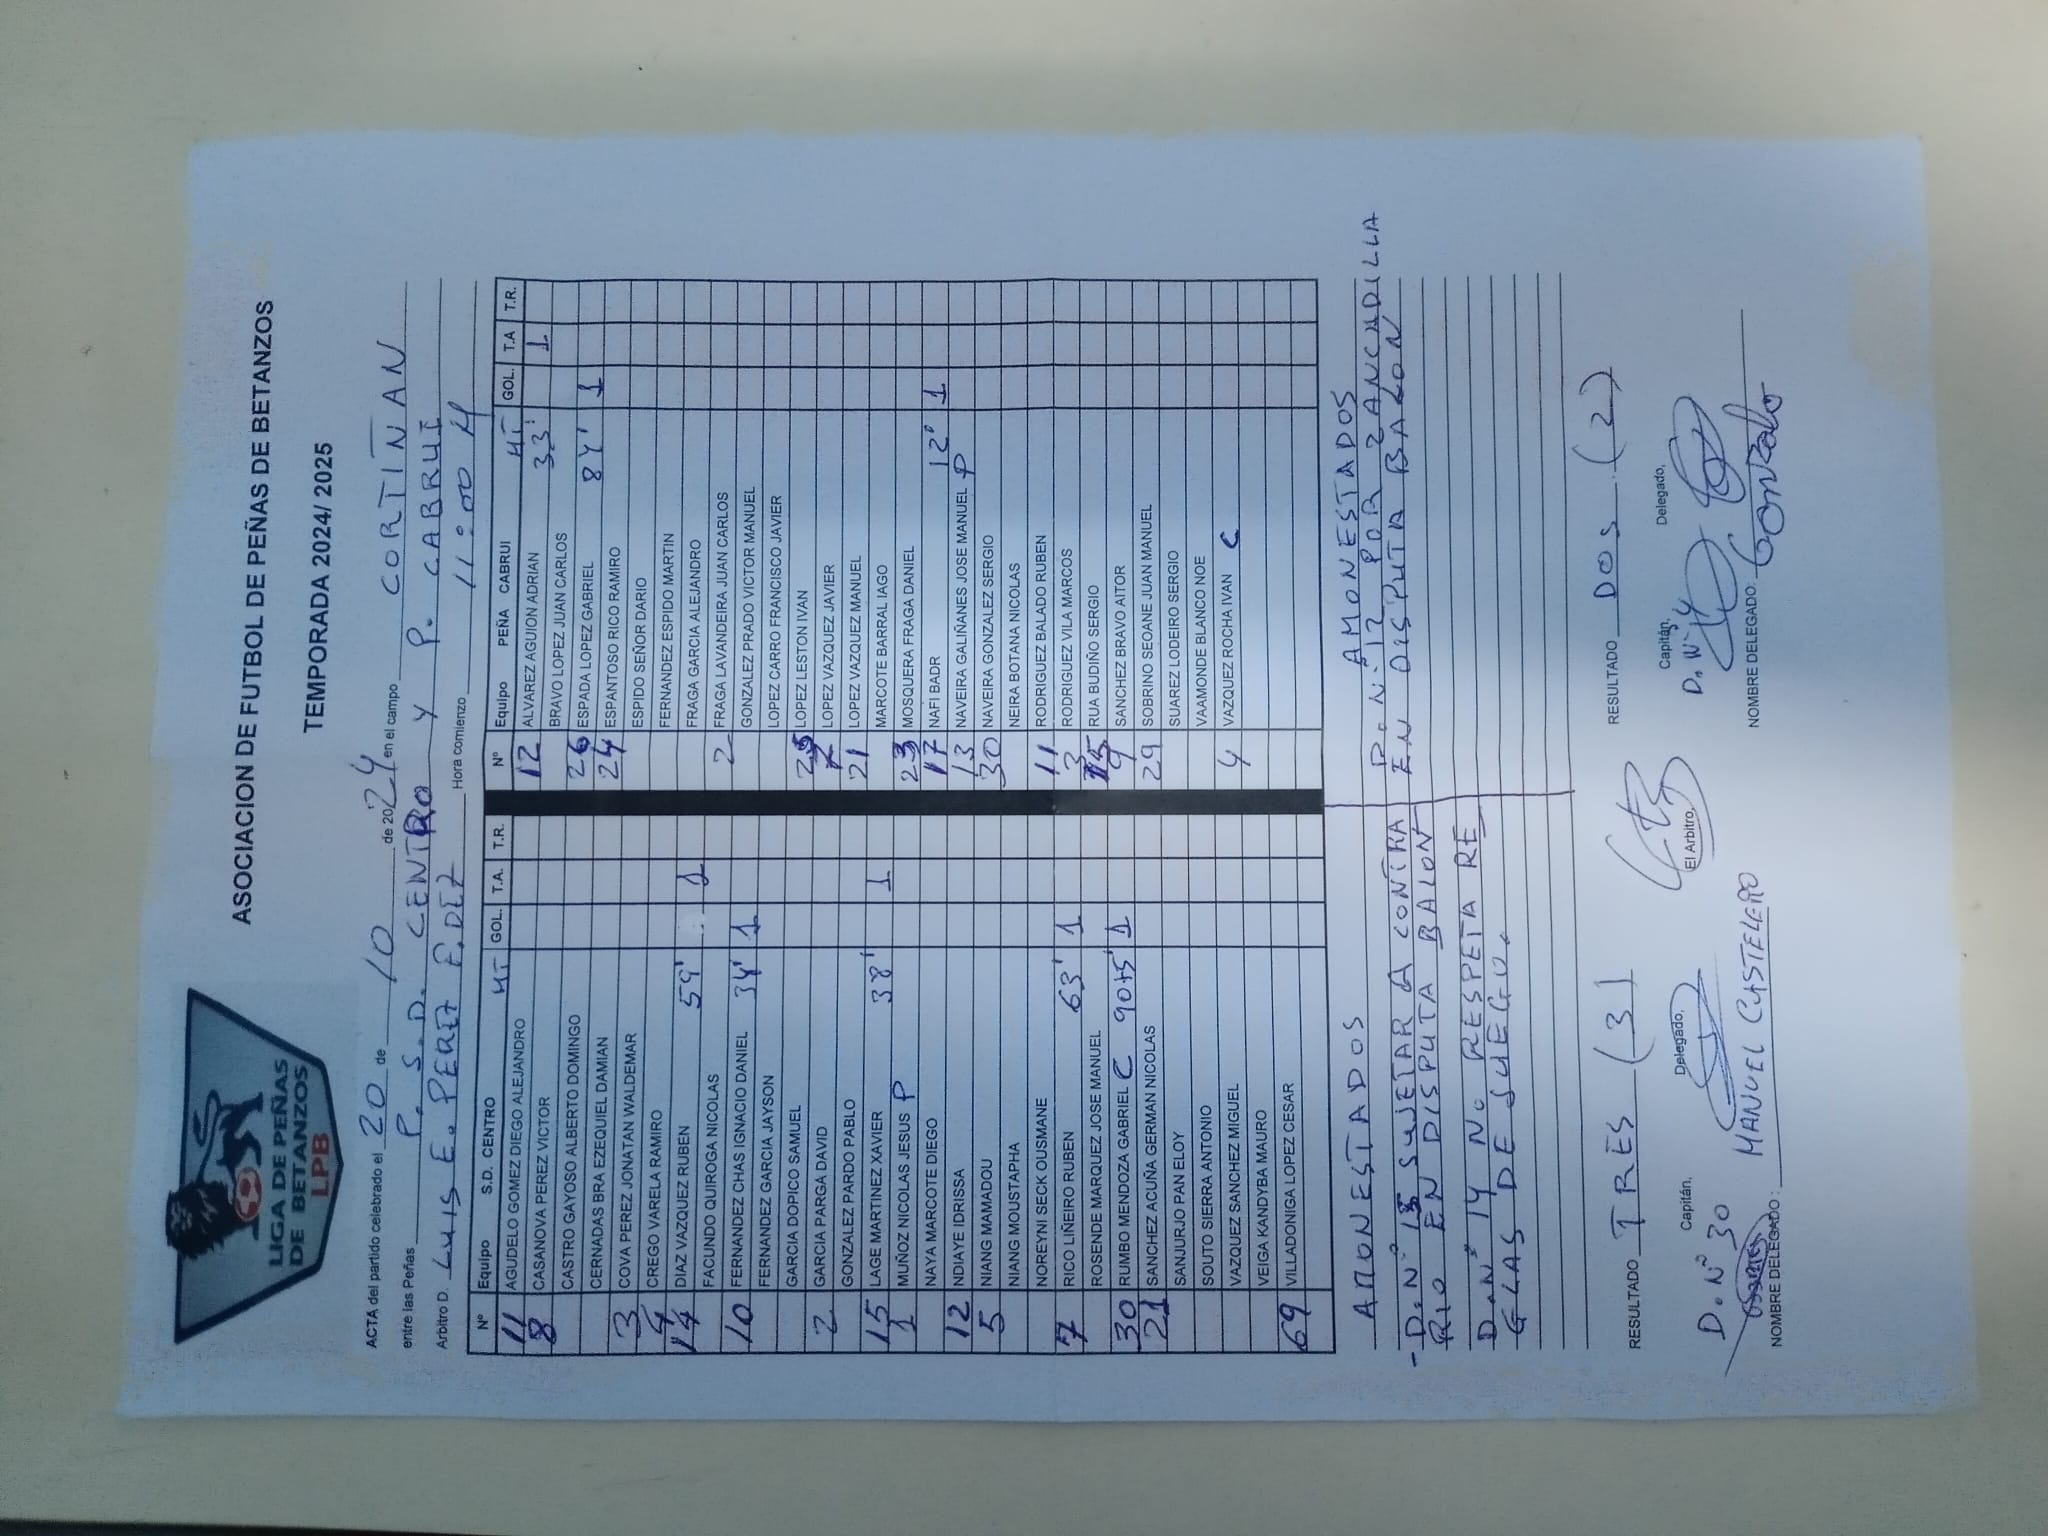 ASOCIACION DE FUTBOL DE PEÑAS DE BETANZOS
TEMPORADA 2024/ 2025
LIGA DE PEÑAS
DE BETANZOS
LPB
ACTA del partido celebrado el 20 de 10 de 2024 en el campo CORTIÑAN
entre las Peñas P. S.D. CENTRO y P. CABRUI
Arbitro D. LUIS E. PEREZ F.DEZ Hora comienzo 11:00 H
Nº Equipo S.D. CENTRO MT GOL. T.A. T.R.
11 AGUDELO GOMEZ DIEGO ALEJANDRO
8 CASANOVA PEREZ VICTOR
CASTRO GAYOSO ALBERTO DOMINGO
CERNADAS BRA EZEQUIEL DAMIAN
3 COVA PEREZ JONATAN WALDEMAR
4 CREGO VARELA RAMIRO
14 DIAZ VAZQUEZ RUBEN 59' 1
FACUNDO QUIROGA NICOLAS
10 FERNANDEZ CHAS IGNACIO DANIEL 34' 1
FERNANDEZ GARCIA JAYSON
GARCIA DOPICO SAMUEL
2 GARCIA PARGA DAVID
GONZALEZ PARDO PABLO
15 LAGE MARTINEZ XAVIER 38' 1
1 MUÑOZ NICOLAS JESUS P
NAYA MARCOTE DIEGO
12 NDIAYE IDRISSA
5 NIANG MAMADOU
NIANG MOUSTAPHA
NOREYNI SECK OUSMANE
7 RICO LIÑEIRO RUBEN 63' 1
ROSENDE MARQUEZ JOSE MANUEL
30 RUMBO MENDOZA GABRIEL C 90+5' 1
21 SANCHEZ ACUÑA GERMAN NICOLAS
SANJURJO PAN ELOY
SOUTO SIERRA ANTONIO
VAZQUEZ SANCHEZ MIGUEL
VEIGA KANDYBA MAURO
69 VILLADONIGA LOPEZ CESAR
Nº Equipo PEÑA CABRUI MT GOL. T.A T.R.
12 ALVAREZ AGUION ADRIAN 33' 1
BRAVO LOPEZ JUAN CARLOS
26 ESPADA LOPEZ GABRIEL 84' 1
24 ESPANTOSO RICO RAMIRO
ESPIDO SEÑOR DARIO
FERNANDEZ ESPIDO MARTIN
FRAGA GARCIA ALEJANDRO
2 FRAGA LAVANDEIRA JUAN CARLOS
GONZALEZ PRADO VICTOR MANUEL
LOPEZ CARRO FRANCISCO JAVIER
25 LOPEZ LESTON IVAN
LOPEZ VAZQUEZ JAVIER
21 LOPEZ VAZQUEZ MANUEL
MARCOTE BARRAL IAGO
23 MOSQUERA FRAGA DANIEL
17 NAFI BADR 12' 1
13 NAVEIRA GALIÑANES JOSE MANUEL P
30 NAVEIRA GONZALEZ SERGIO
NEIRA BOTANA NICOLAS
11 RODRIGUEZ BALADO RUBEN
3 RODRIGUEZ VILA MARCOS
15 RUA BUDIÑO SERGIO
9 SANCHEZ BRAVO AITOR
29 SOBRINO SEOANE JUAN MANUEL
SUAREZ LODEIRO SERGIO
VAAMONDE BLANCO NOE
4 VAZQUEZ ROCHA IVAN C
AMONESTADOS
- D. Nº 15 SUJETAR A CONTRA
RIO EN DISPUTA BALON
D. Nº 14 NO RESPETA RE
GLAS DE JUEGO.
AMONESTADOS
D. Nº 12 POR ZANCADILLA
EN DISPUTA BALON
RESULTADO TRES (3) RESULTADO DOS (2)
Capitán, Delegado, El Arbitro, Capitán, Delegado,
D. Nº 30 D. Nº 4
NOMBRE DELEGADO: MANUEL CASTELEIRO NOMBRE DELEGADO: Gonzalo